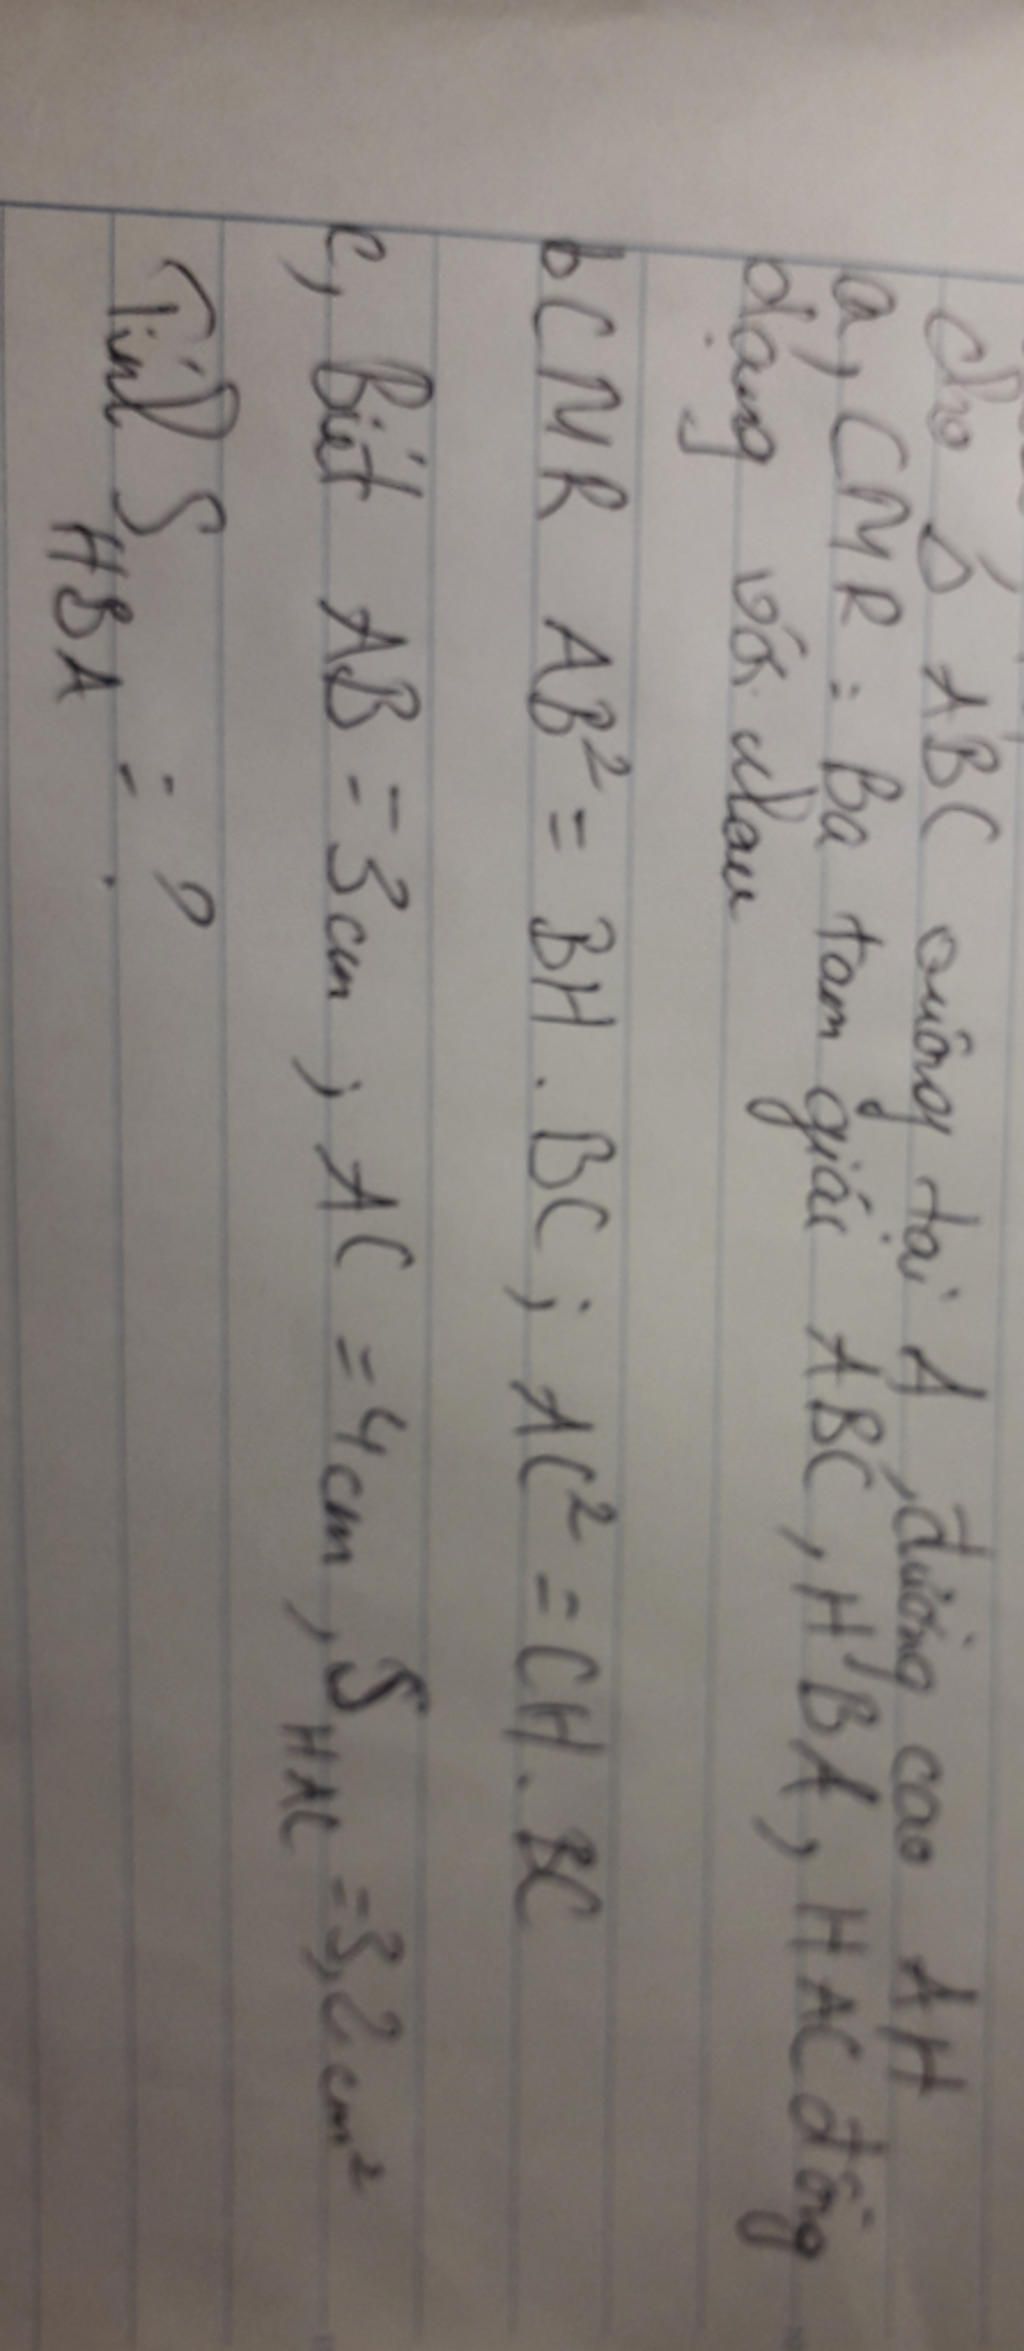 Cho Δ ABC vuông tại A, đường cao AH
a, CMR: Ba tam giác ABC, HBA, HAC đồng
dạng với nhau
b CMR AB² = BH . BC ; AC² = CH . BC
c, Biết AB = 3cm ; AC = 4cm, S HAC = 3,2 cm²
Tính S HBA = ?